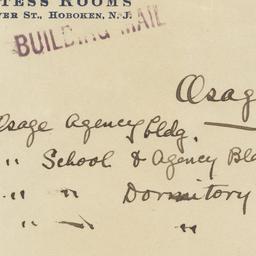 TESS ROOMS
VER ST., HOBOKEN, N. J.
BUILDING MAIL
Osag
Osage Agency Bldg.
" School & Agency Bld
" " Dormitory
" " "